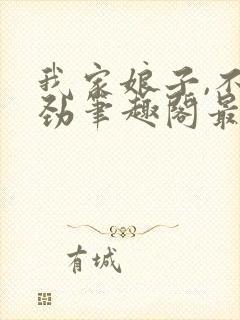 我家娘子,不
劲笔趣阁最
有城